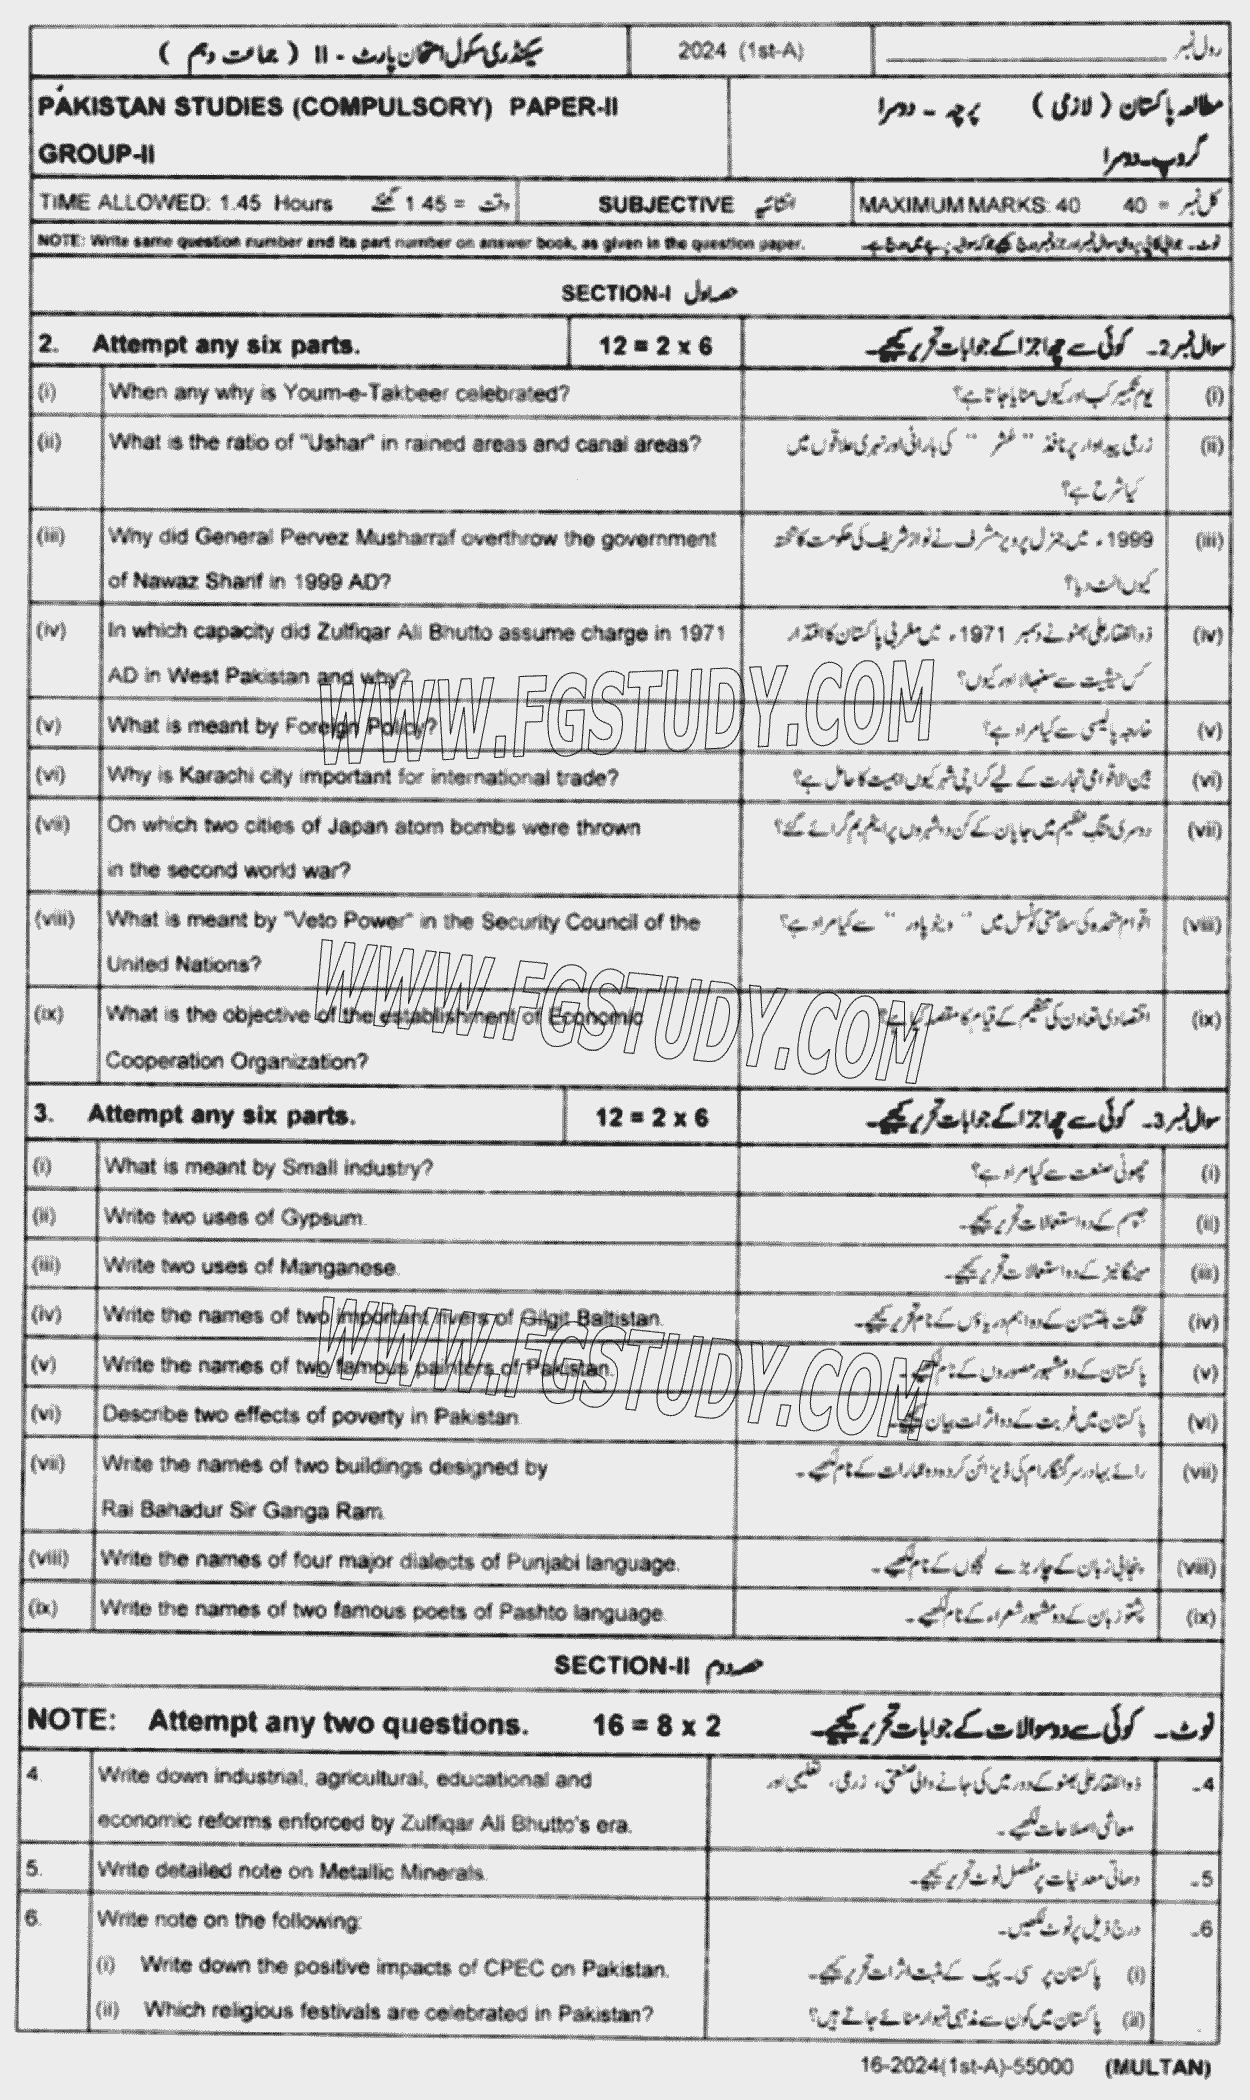 سیکنڈری سکول امتحان پارٹ - II ( جماعت دہم ) 2024 (1st-A) رول نمبر
PAKISTAN STUDIES (COMPULSORY) PAPER-II مطالعہ پاکستان ( لازمی ) پرچہ - دوسرا
GROUP-II گروپ-دوسرا
TIME ALLOWED: 1.45 Hours وقت = 1.45 گھنٹے SUBJECTIVE انشائیہ MAXIMUM MARKS: 40 کل نمبر = 40
NOTE: Write same question number and its part number on answer book, as given in the question paper.
SECTION-I حصہ اول
2. Attempt any six parts. 12 = 2 x 6 سوال نمبر 2۔ کوئی سے چھ اجزا کے جوابات تحریر کیجیے۔
(i) When any why is Youm-e-Takbeer celebrated? یوم تکبیر کب اور کیوں منایا جاتا ہے؟ (i)
(ii) What is the ratio of "Ushar" in rained areas and canal areas? زرعی پیداوار پر نافذ " عشر " کی بارانی اور نہری علاقوں میں (ii)
کیا شرح ہے؟
(iii) Why did General Pervez Musharraf overthrow the government 1999ء میں جنرل پرویز مشرف نے نواز شریف کی حکومت کا تختہ (iii)
of Nawaz Sharif in 1999 AD? کیوں الٹ دیا؟
(iv) In which capacity did Zulfiqar Ali Bhutto assume charge in 1971 ذوالفقار علی بھٹو نے دسمبر 1971ء میں مغربی پاکستان کا اقتدار (iv)
AD in West Pakistan and why? کس حیثیت سے سنبھالا اور کیوں؟
(v) What is meant by Foreign Policy? خارجہ پالیسی سے کیا مراد ہے؟ (v)
(vi) Why is Karachi city important for international trade? بین الاقوامی تجارت کے لیے کراچی شہر کیوں اہمیت کا حامل ہے؟ (vi)
(vii) On which two cities of Japan atom bombs were thrown دوسری جنگ عظیم میں جاپان کے کن دو شہروں پر ایٹم بم گرائے گئے؟ (vii)
in the second world war?
(viii) What is meant by "Veto Power" in the Security Council of the اقوام متحدہ کی سلامتی کونسل میں " ویٹو پاور " سے کیا مراد ہے؟ (viii)
United Nations?
(ix) What is the objective of the establishment of Economic اقتصادی تعاون کی تنظیم کے قیام کا مقصد کیا ہے؟ (ix)
Cooperation Organization?
3. Attempt any six parts. 12 = 2 x 6 سوال نمبر 3۔ کوئی سے چھ اجزا کے جوابات تحریر کیجیے۔
(i) What is meant by Small industry? چھوٹی صنعت سے کیا مراد ہے؟ (i)
(ii) Write two uses of Gypsum. جپسم کے دو استعمالات تحریر کیجیے۔ (ii)
(iii) Write two uses of Manganese. مینگانیز کے دو استعمالات تحریر کیجیے۔ (iii)
(iv) Write the names of two important rivers of Gilgit Baltistan. گلگت بلتستان کے دو اہم دریاؤں کے نام تحریر کیجیے۔ (iv)
(v) Write the names of two famous painters of Pakistan. پاکستان کے دو مشہور مصوروں کے نام لکھیے۔ (v)
(vi) Describe two effects of poverty in Pakistan. پاکستان میں غربت کے دو اثرات بیان کیجیے۔ (vi)
(vii) Write the names of two buildings designed by رائے بہادر سر گنگا رام کی ڈیزائن کردہ دو عمارات کے نام لکھیے۔ (vii)
Rai Bahadur Sir Ganga Ram.
(viii) Write the names of four major dialects of Punjabi language. پنجابی زبان کے چار بڑے لہجوں کے نام لکھیے۔ (viii)
(ix) Write the names of two famous poets of Pashto language. پشتو زبان کے دو مشہور شعراء کے نام لکھیے۔ (ix)
SECTION-II حصہ دوم
NOTE: Attempt any two questions. 16 = 8 x 2 نوٹ۔ کوئی سے دو سوالات کے جوابات تحریر کیجیے۔
4. Write down industrial, agricultural, educational and ذوالفقار علی بھٹو کے دور میں کی جانے والی صنعتی، زرعی، تعلیمی اور 4۔
economic reforms enforced by Zulfiqar Ali Bhutto's era. معاشی اصلاحات لکھیے۔
5. Write detailed note on Metallic Minerals. دھاتی معدنیات پر مفصل نوٹ تحریر کیجیے۔ 5۔
6. Write note on the following: درج ذیل پر نوٹ لکھیں۔ 6۔
(i) Write down the positive impacts of CPEC on Pakistan. (i) پاکستان پر سی۔ پیک کے مثبت اثرات تحریر کیجیے۔
(ii) Which religious festivals are celebrated in Pakistan? (ii) پاکستان میں کون سے مذہبی تہوار منائے جاتے ہیں؟
16-2024(1st-A)-55000 (MULTAN)
WWW.FGSTUDY.COM
WWW.FGSTUDY.COM
WWW.FGSTUDY.COM